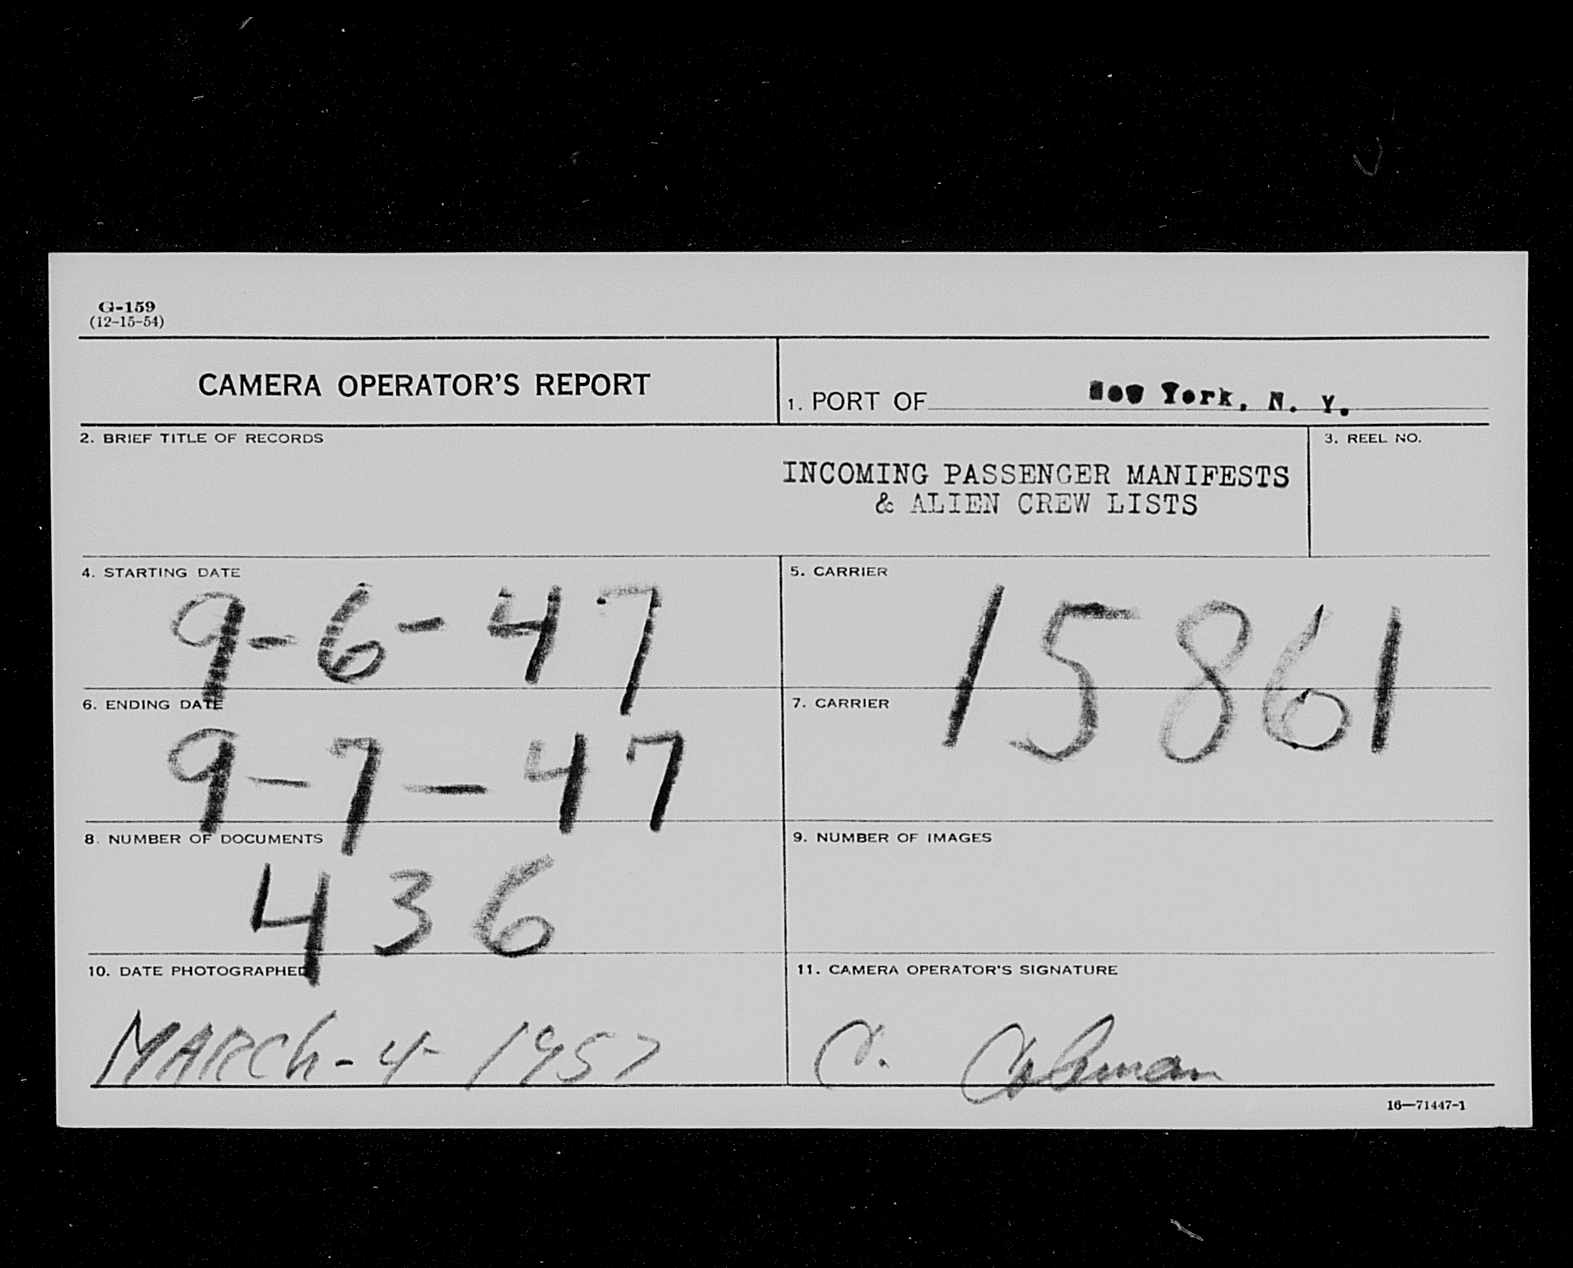 G-159
(12-15-54)
CAMERA OPERATOR'S REPORT
1. PORT OF New York, N. Y.
2. BRIEF TITLE OF RECORDS
3. REEL NO.
INCOMING PASSENGER MANIFESTS
& ALIEN CREW LISTS
4. STARTING DATE
9-6-47
5. CARRIER
15861
6. ENDING DATE
9-7-47
7. CARRIER
8. NUMBER OF DOCUMENTS
436
9. NUMBER OF IMAGES
10. DATE PHOTOGRAPHED
MARCh-4-1957
11. CAMERA OPERATOR'S SIGNATURE
C. Coleman
16—71447-1